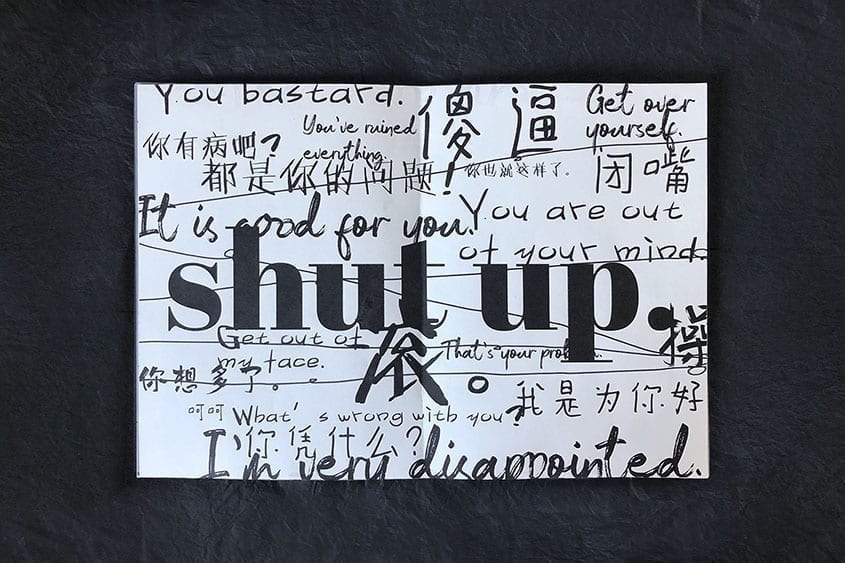 You bastard.
傻逼
Get over
yourself.
You've ruined
everything.
你有病吧?
都是你的问题!
你也就这样了。
闭嘴
It is good for you.
You are out
of your mind.
shut up.
Get out of
my face.
滚。
That's your problem.
操
你想多了。
我是为你好
呵呵
What's wrong with you?
你凭什么?
I'm very disappointed.